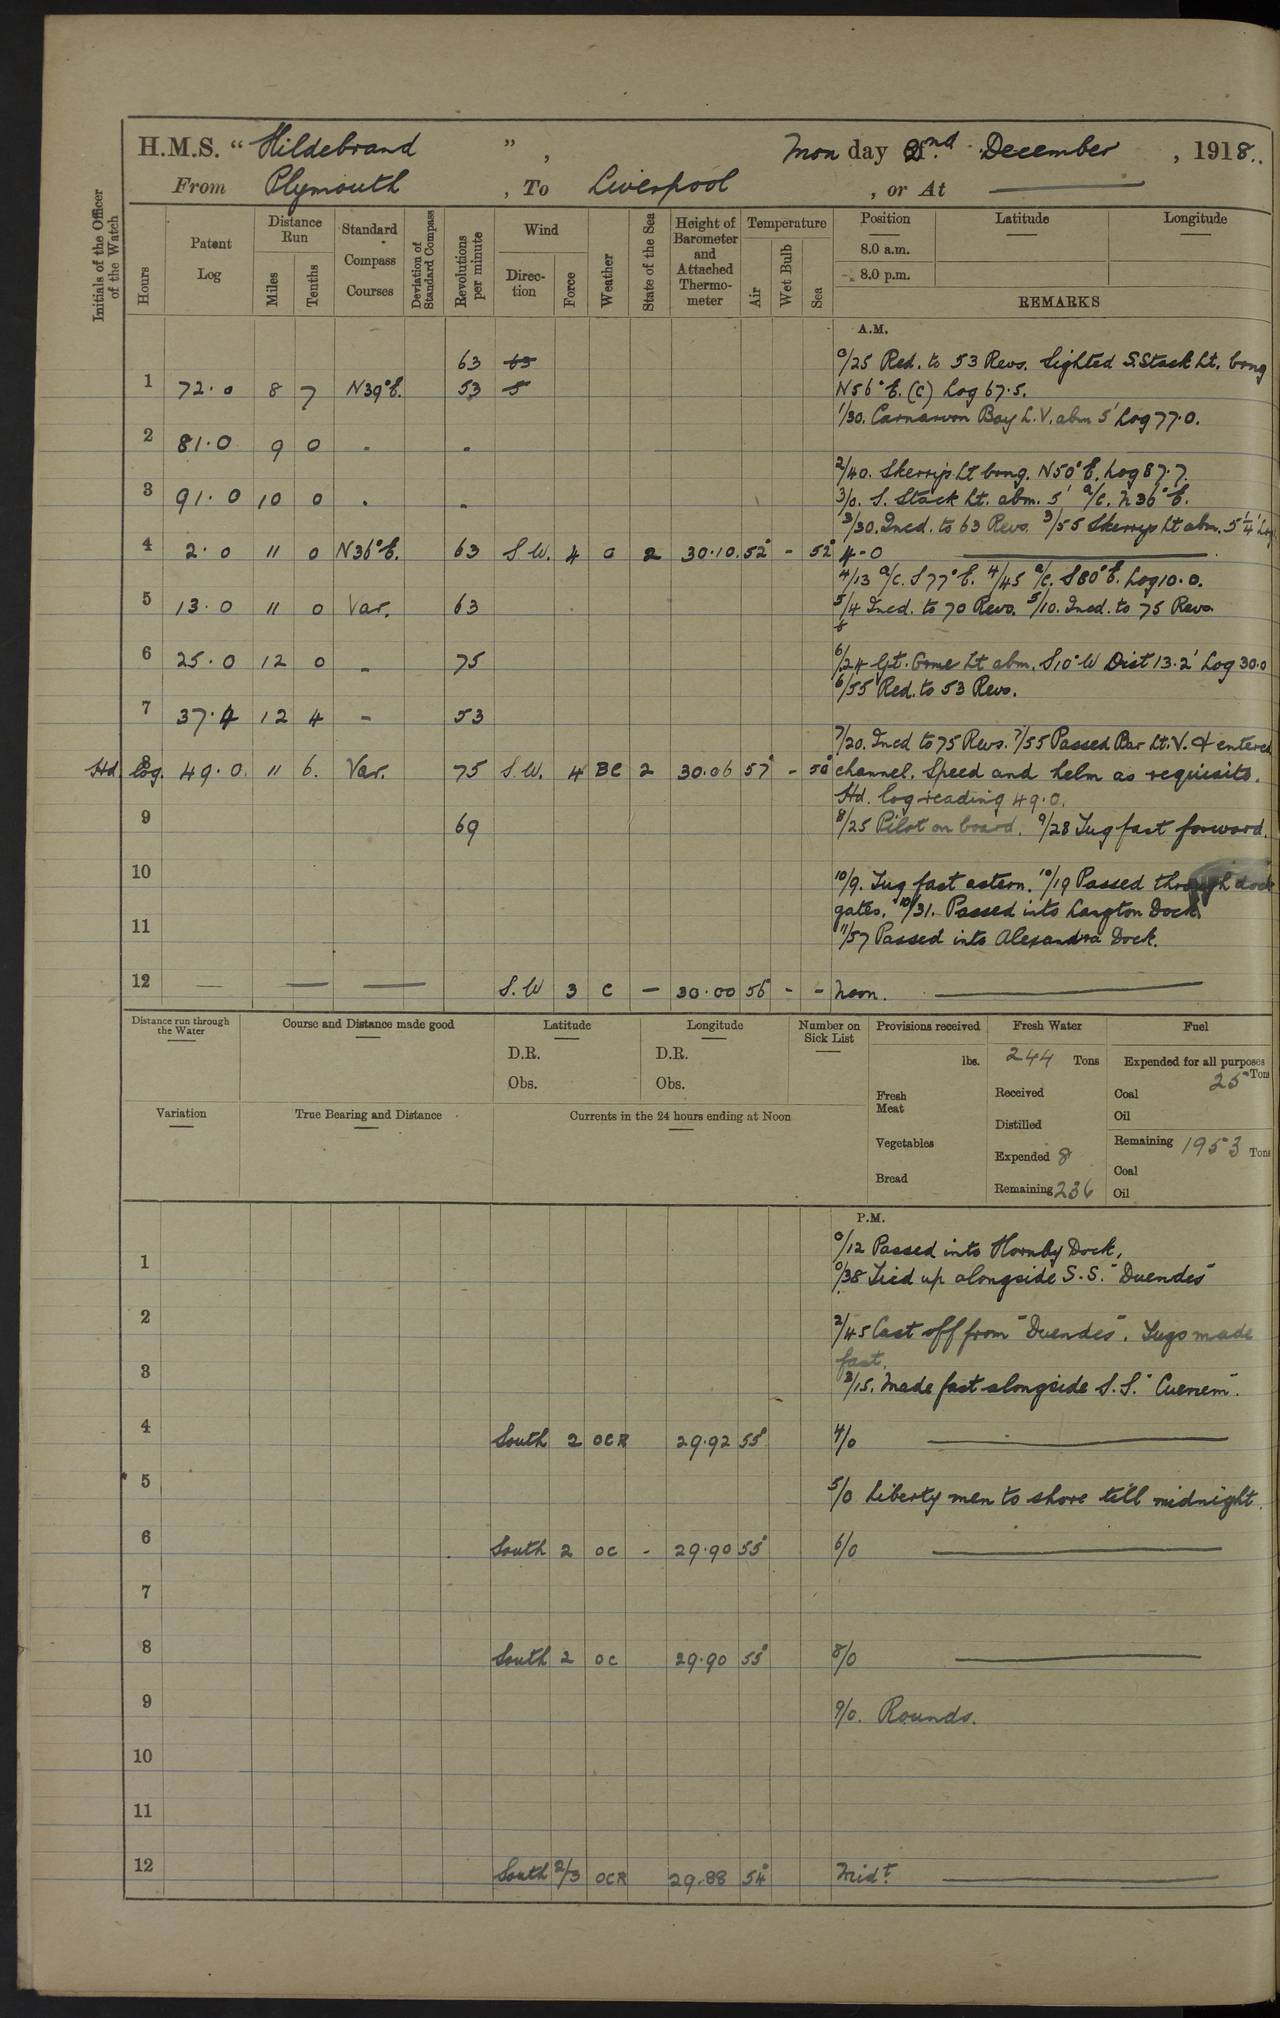 H.M.S. “ Hildebrand ” , Mon day 2nd December , 1918.
From Plymouth , To Liverpool , or At
Initials of the Officer of the Watch
Hours Patent Log Distance Run Miles Tenths Standard Compass Courses Deviation of Standard Compass Revolutions per minute Wind Direc- tion Force Weather State of the Sea Height of Barometer and Attached Thermo- meter Temperature Air Wet Bulb Sea Position Latitude Longitude
8.0 a.m.
8.0 p.m.
REMARKS
A.M.
63 63 0/25 Red. to 53 Revs. Sighted S. Stack Lt. brng
1 72.0 8 7 N39°E. 53 5 N56°E. (C) Log 67.5.
1/30. Carnarvon Bay L.V. abm 5' Log 77.0.
2 81.0 9 0 - -
2/40. Skerrys Lt brng. N50°E. Log 87.7.
3 91.0 10 0 - - 3/0. S. Stack Lt. abm. 5' a/c. N36°E.
3/30. Incd. to 63 Revs. 3/55 Skerrys Lt abm. 5¼' Log
4 2.0 11 0 N36°E. 63 S.W. 4 O 2 30.10 52° - 52° 4-0
4/13 a/c. S77°E. 4/45 a/c. S80°E. Log 10.0.
5 13.0 11 0 Var. 63 5/4 Incd. to 70 Revs. 5/10. Incd. to 75 Revs.
6 25.0 12 0 - 75 6/24 Gt. Orme Lt abm. S10°W Dist 13.2' Log 30.0
6/55 Red. to 53 Revs.
7 37.4 12 4 - 53
7/20. Incd to 75 Revs. 7/55 Passed Bar Lt. V. & entered
Hd. log. 8 49.0. 11 6. Var. 75 S.W. 4 BC 2 30.06 57° - 50° channel. Speed and helm as requisite.
Hd. log reading 49.0.
9 69 8/25 Pilot on board. 9/28 Tug fast forward.
10 10/9. Tug fast astern. 10/19 Passed through dock
gates. 10/31. Passed into Langton Dock
11 11/57 Passed into Alexandra Dock.
12 — — — S.W 3 C — 30.00 56° - - Noon.
Distance run through the Water Course and Distance made good Latitude Longitude Number on Sick List Provisions received Fresh Water Fuel
D.R. D.R. lbs. 244 Tons Expended for all purposes
25 Tons
Obs. Obs. Fresh Meat Received Coal
Oil
Variation True Bearing and Distance Currents in the 24 hours ending at Noon Distilled
Vegetables Expended 8 Remaining 1953 Tons
Coal
Bread Remaining 236 Oil
P.M.
0/12 Passed into Hornby Dock,
1 0/38 Tied up alongside S.S. "Duendes"
2 2/45 Cast off from "Duendes". Tugs made
fast.
3 3/15. Made fast alongside S.S.
4 South 2 OCR 29.92 55° 4/0
5 5/0 Liberty men to shore till midnight.
6 South 2 OC - 29.90 55° 6/0
7
8 South 2 OC 29.90 55° 8/0
9 9/0. Rounds.
10
11
12 South 2/3 OCR 29.88 54° Midt.